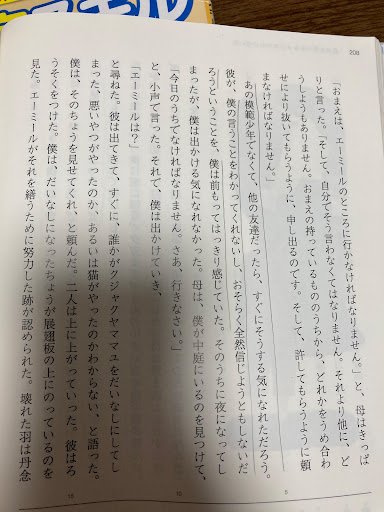 208
「おまえは、エーミールのところに行かなければなりません。」と、母はきっぱ
りと言った。「そして、自分でそう言わなくてはなりません。それより他に、ど
うしようもありません。おまえの持っているもののうちから、どれかをうめ合わ
せにより抜いてもらうように、申し出るのです。そして、許してもらうように頼
まなければなりません。」
あの模範少年でなくて、他の友達だったら、すぐにそうする気になれただろう。
彼が、僕の言うことをわかってくれないし、おそらく全然信じようともしないだ
ろうということを、僕は前もってはっきり感じていた。そのうちに夜になってし
まったが、僕は出かける気になれなかった。母は、僕が中庭にいるのを見つけて、
「今日のうちでなければなりません。さあ、行きなさい。」
と、小声で言った。それで、僕は出かけていき、
「エーミールは?」
と尋ねた。彼は出てきて、すぐに、誰かがクジャクヤママユをだいなしにしてし
まった、悪いやつがやったのか、あるいは猫がやったのかわからない、と語った。
僕は、そのちょうを見せてくれ、と頼んだ。二人は上に上がっていった。彼はろ
うそくをつけた。僕は、だいなしになったちょうが展翅板の上にのっているのを
見た。エーミールがそれを繕うために努力した跡が認められた。壊れた羽は丹念
5
10
15